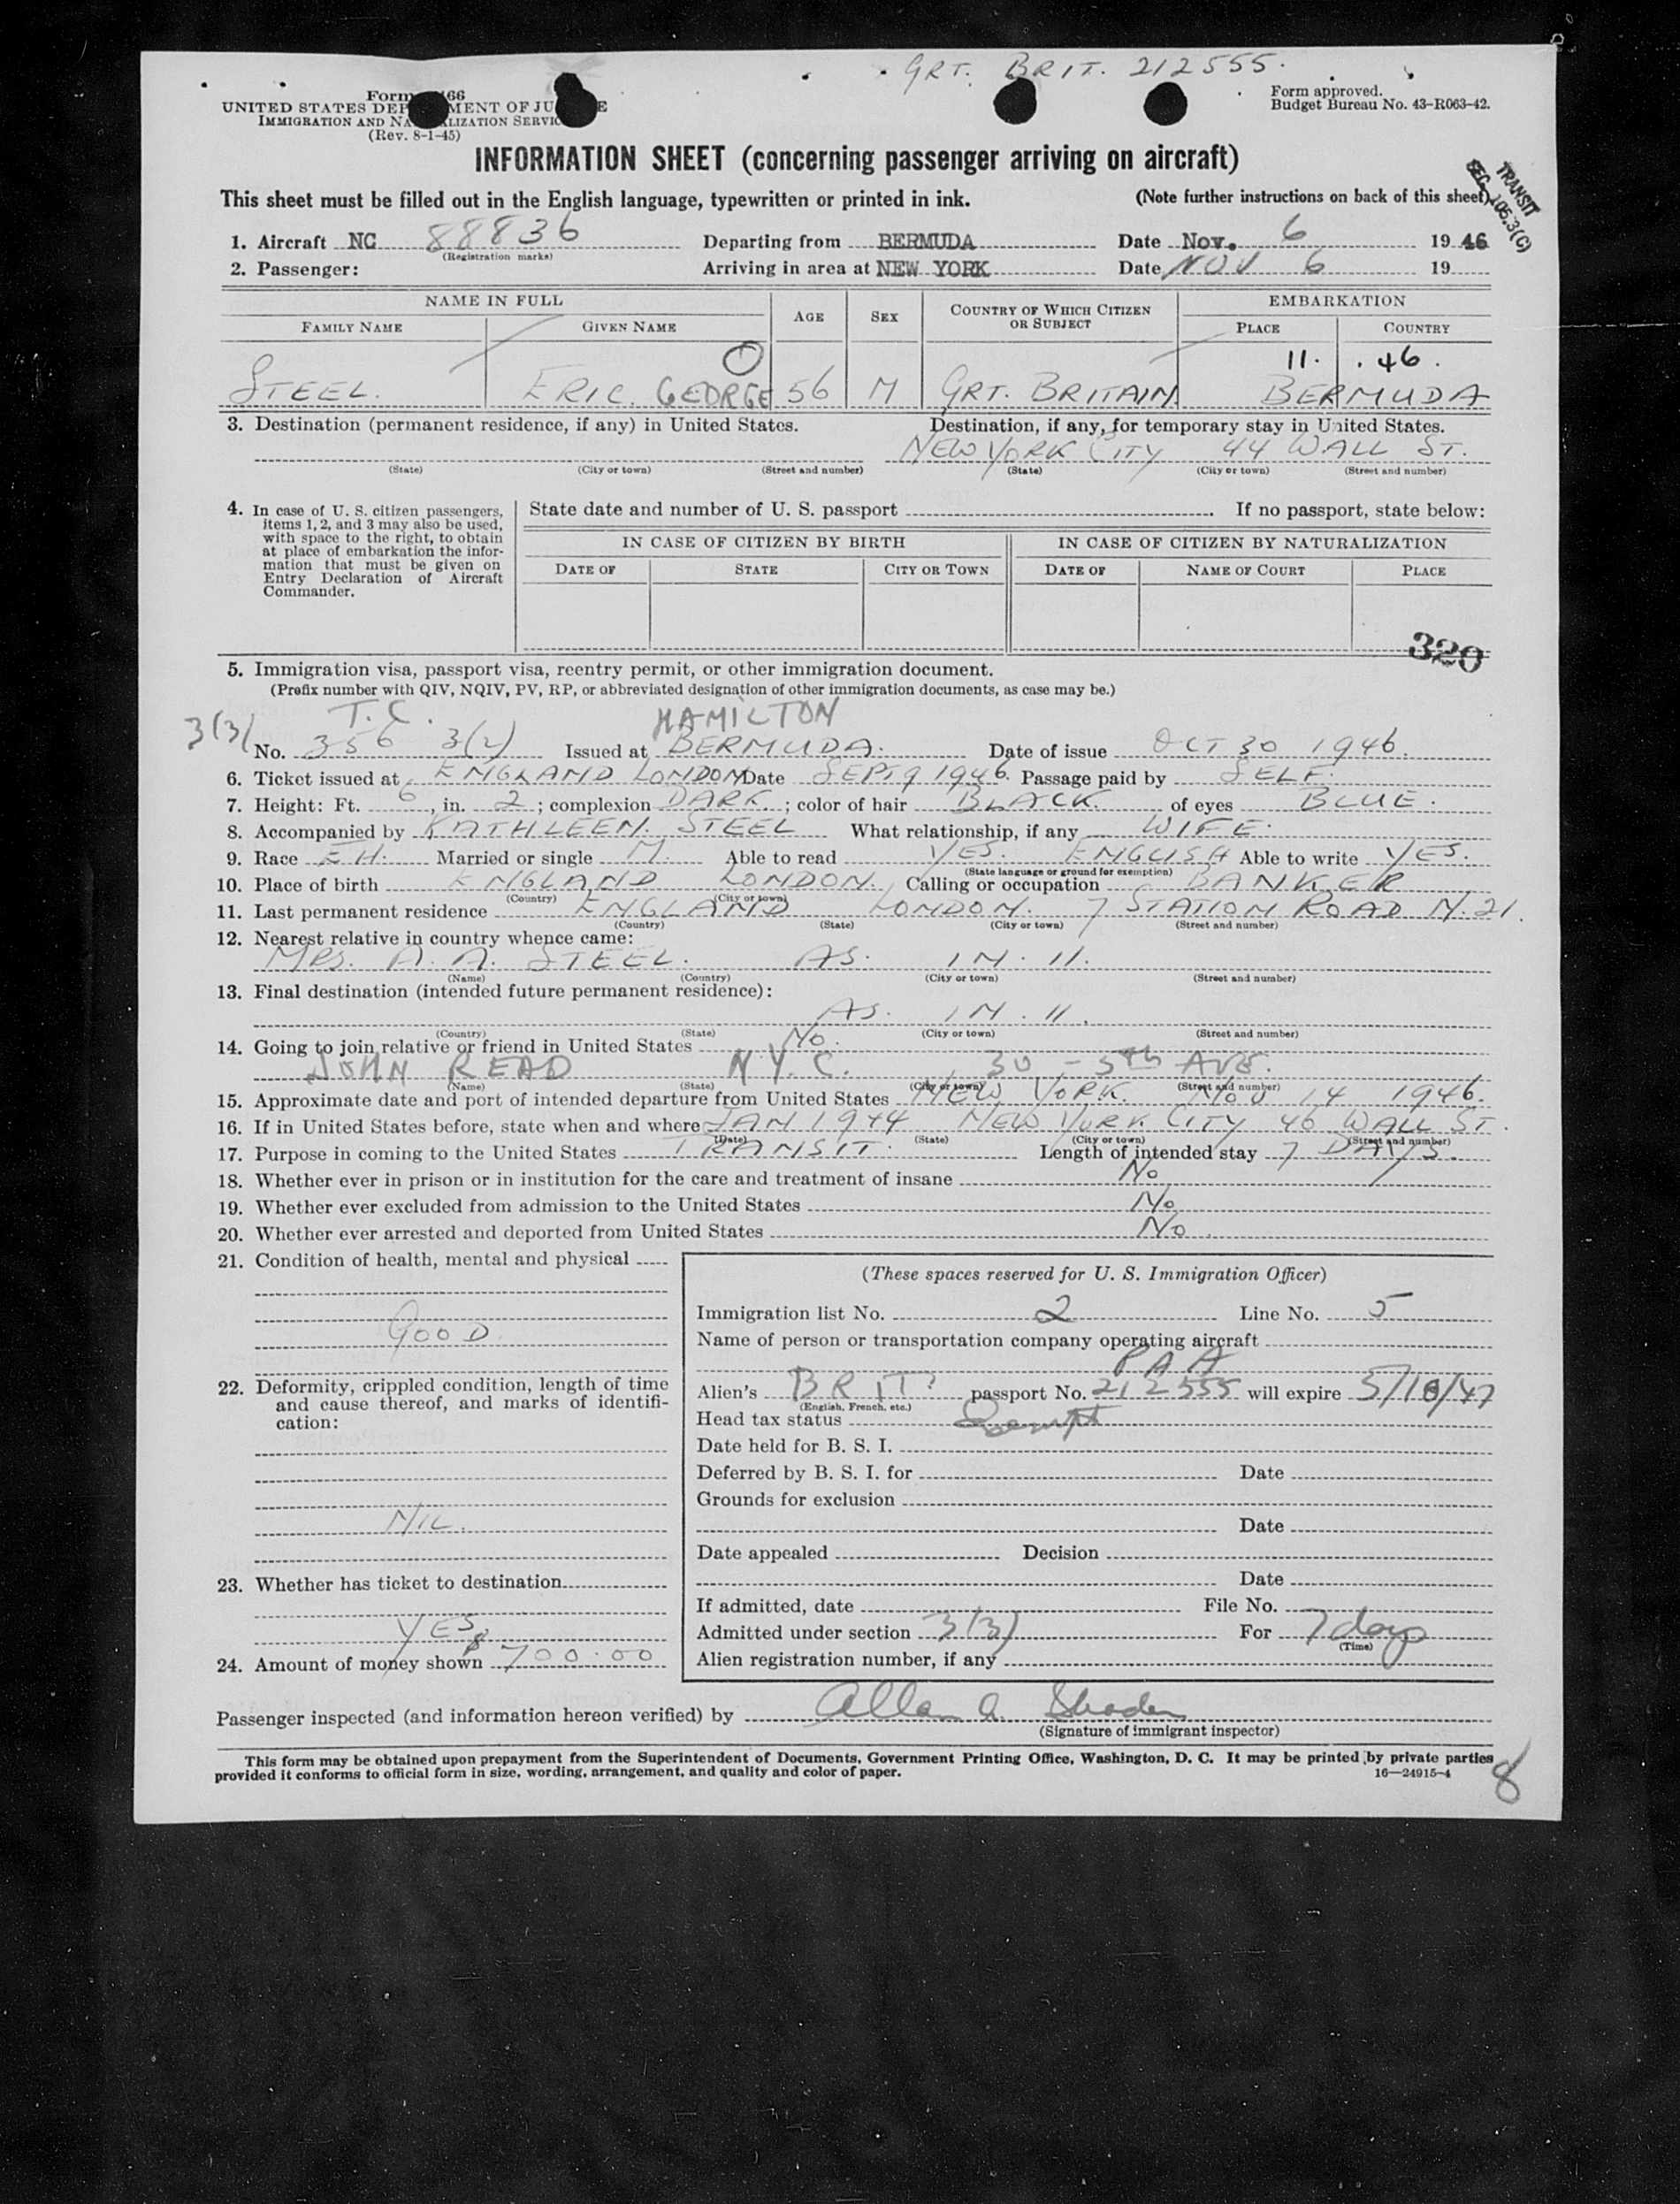 GRT. BRIT. 212555.
Form 66
UNITED STATES DEP MENT OF JU E
IMMIGRATION AND NA LIZATION SERVIC
(Rev. 8-1-45)
Form approved.
Budget Bureau No. 43-R063-42.
INFORMATION SHEET (concerning passenger arriving on aircraft)
TRANSIT
SEC. 105.3(C)
This sheet must be filled out in the English language, typewritten or printed in ink. (Note further instructions on back of this sheet)
1. Aircraft NC 88836 Departing from BERMUDA Date Nov. 6 1946
(Registration marks)
2. Passenger: Arriving in area at NEW YORK Date NOV 6 19
NAME IN FULL AGE SEX COUNTRY OF WHICH CITIZEN OR SUBJECT EMBARKATION
FAMILY NAME GIVEN NAME PLACE COUNTRY
11. .46.
STEEL. ERIC. GEORGE 56 M GRT. BRITAIN. BERMUDA
3. Destination (permanent residence, if any) in United States. Destination, if any, for temporary stay in United States.
NEW YORK CITY 44 WALL ST.
(State) (City or town) (Street and number) (State) (City or town) (Street and number)
4. In case of U. S. citizen passengers, items 1, 2, and 3 may also be used, with space to the right, to obtain at place of embarkation the information that must be given on Entry Declaration of Aircraft Commander.
State date and number of U. S. passport If no passport, state below:
IN CASE OF CITIZEN BY BIRTH IN CASE OF CITIZEN BY NATURALIZATION
DATE OF STATE CITY OR TOWN DATE OF NAME OF COURT PLACE
320
5. Immigration visa, passport visa, reentry permit, or other immigration document.
(Prefix number with QIV, NQIV, PV, RP, or abbreviated designation of other immigration documents, as case may be.)
3(3) T.C. HAMILTON
No. 356 3(2) Issued at BERMUDA. Date of issue OCT 30 1946.
6. Ticket issued at ENGLAND LONDON Date SEPT 9 1946. Passage paid by SELF.
7. Height: Ft. 6, in. 2; complexion DARK.; color of hair BLACK. of eyes BLUE.
8. Accompanied by KATHLEEN. STEEL What relationship, if any WIFE.
9. Race EH. Married or single M. Able to read YES. ENGLISH Able to write YES.
(State language or ground for exemption)
10. Place of birth ENGLAND LONDON. Calling or occupation BANKER
(Country) (City or town)
11. Last permanent residence ENGLAND LONDON. 7 STATION ROAD N.21.
(Country) (State) (City or town) (Street and number)
12. Nearest relative in country whence came:
MRS. A. A. STEEL. AS. IN. 11.
(Name) (Country) (City or town) (Street and number)
13. Final destination (intended future permanent residence):
AS. IN. 11.
(Country) (State) (City or town) (Street and number)
14. Going to join relative or friend in United States No.
JOHN READ N.Y.C. 30 - 5th AVE.
(Name) (State) (City or town) (Street and number)
15. Approximate date and port of intended departure from United States NEW YORK. NOV 14 1946.
16. If in United States before, state when and where JAN 1944 NEW YORK CITY 46 WALL ST.
(Date) (State) (City or town) (Street and number)
17. Purpose in coming to the United States TRANSIT. Length of intended stay 7 DAYS.
18. Whether ever in prison or in institution for the care and treatment of insane No
19. Whether ever excluded from admission to the United States No
20. Whether ever arrested and deported from United States No.
21. Condition of health, mental and physical
GOOD
22. Deformity, crippled condition, length of time and cause thereof, and marks of identification:
NIL.
23. Whether has ticket to destination
YES
24. Amount of money shown $700.00
(These spaces reserved for U. S. Immigration Officer)
Immigration list No. 2 Line No. 5
Name of person or transportation company operating aircraft
PAA
Alien's BRIT. passport No. 212555 will expire 5/18/47
(English, French, etc.)
Head tax status Exempt
Date held for B. S. I.
Deferred by B. S. I. for Date
Grounds for exclusion
Date
Date appealed Decision
Date
If admitted, date File No.
Admitted under section 3(3) For 7 days
(Time)
Alien registration number, if any
Passenger inspected (and information hereon verified) by Allan A.
(Signature of immigrant inspector)
This form may be obtained upon prepayment from the Superintendent of Documents, Government Printing Office, Washington, D. C. It may be printed by private parties
provided it conforms to official form in size, wording, arrangement, and quality and color of paper. 16—24915-4
8